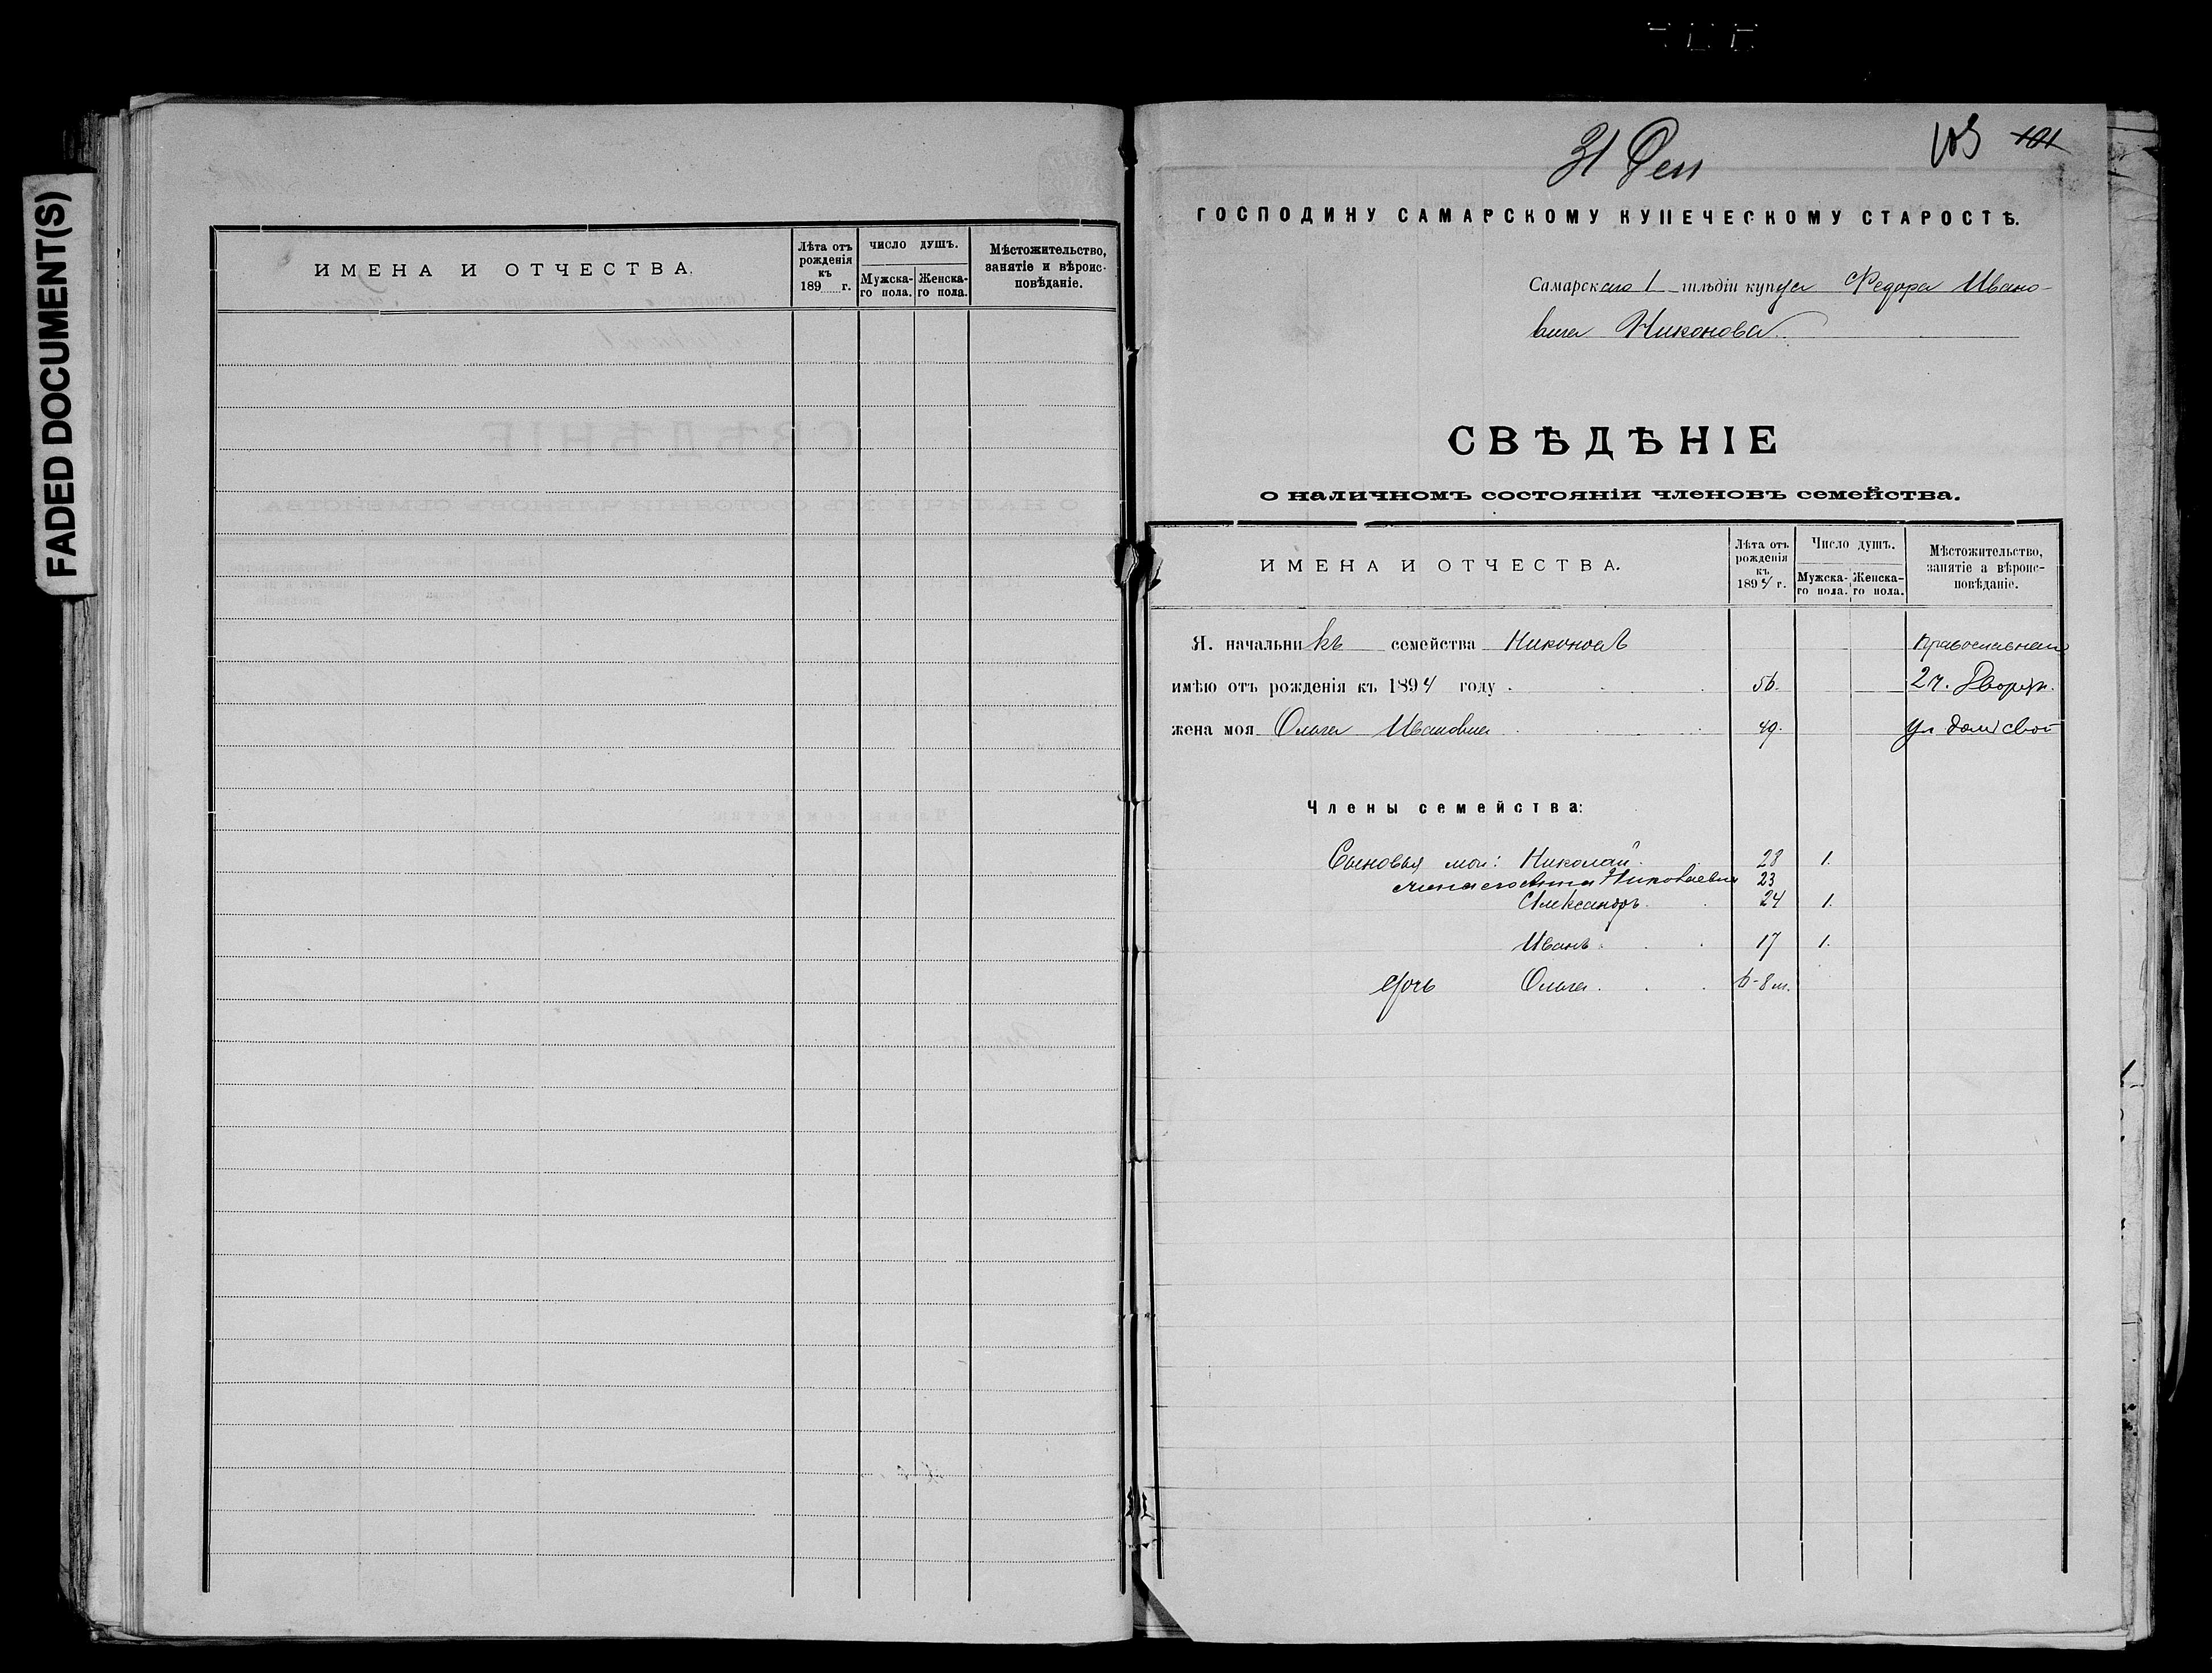 FADED DOCUMENT(S)
ИМЕНА И ОТЧЕСТВА.
Лѣта отъ рожденія къ 189 г.
число душъ.
Мужскаго пола.
Женскаго пола.
Мѣстожительство, занятіе и вѣроисповѣданіе.
31 Дек
103 101
ГОСПОДИНУ САМАРСКОМУ КУПЕЧЕСКОМУ СТАРОСТѢ.
Самарскаго 1 гильдіи купца Федора Ивано-
вича Никонова
СВѢДѢНІЕ
о наличномъ состояніи членовъ семейства.
ИМЕНА И ОТЧЕСТВА.
Лѣта отъ рожденія къ 1894 г.
Число душъ.
Мужска-го пола.
Женска-го пола.
Мѣстожительство, занятіе а вѣроис-повѣданіе.
Я. начальникъ семейства Никоновъ
имѣю отъ рожденія къ 1894 году . 56. 2 ч. Дворян.
жена моя Ольга Ивановна 49. ул домъ свой
Члены семейства:
Сыновья мои: Николай 28 1.
жена его Анна Николаевна 23
Александръ 24 1.
Иванъ 17 1.
дочь Ольга 6-8 м.